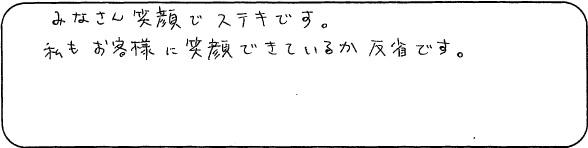 みなさん笑顔でステキです。
私もお客様に笑顔できているか反省です。